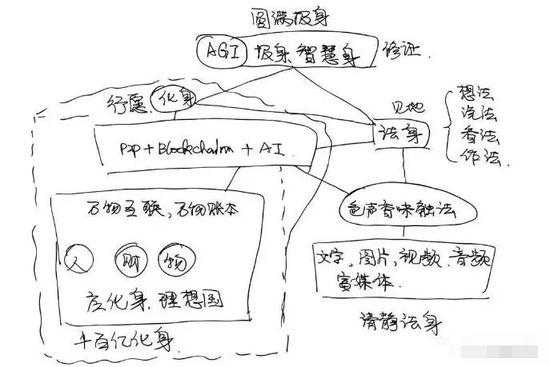 圆满报身
AGI 报身 智慧身 修证
行愿 化身
见地
法身
想法
说法
看法
作法
P2P + Blockchain + AI
万物互联，万物账本
人 财 物
应化身 理想国
千百亿化身
色声香味触法
文字，图片，视频，音频
富媒体
清静法身